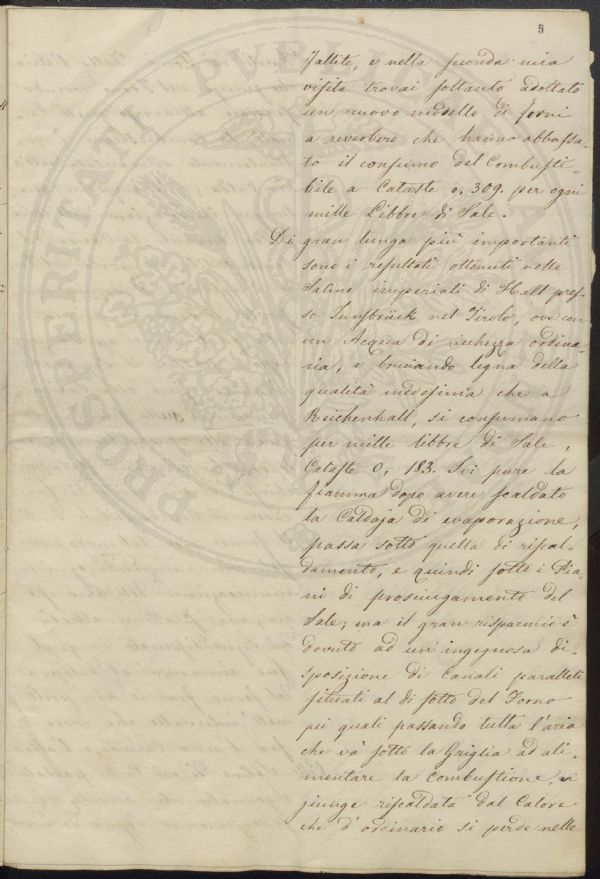 5
fallito, e nella seconda mia
visita trovai soltanto adottato
un nuovo modello di forni
a reverbero che hanno abbassa-
to il consumo del Combusti-
bile a Cataste 0, 309. per ogni
mille Libbre di Sale.
Di gran lunga più importanti
sono i resultati ottenuti nelle
Saline imperiali di Hall pres-
so Innsbrück nel Tirolo, ove con
un Acqua di ricchezza ordina-
ria, e bruciando legna della
qualità medesima che a
Reichenhall, si consumano
per mille libbre di Sale,
Cataste 0, 183. Ivi pure la
fiamma dopo avere scaldato
la Caldaja di evaporazione,
passa sotto quella di riscal-
damento, e quindi sotto i Pia-
ni di prosciugamento del
Sale; ma il gran risparmio è
dovuto ad un'ingegnosa di-
sposizione di Canali paralleli
situati al di sotto del Forno
pei quali passando tutta l'aria
che và sotto la Griglia ad ali-
mentare la Combustione, vi
giunge riscaldata dal Calore
che d'ordinario si perde nelle
PROSPERITATI PVBLICAE